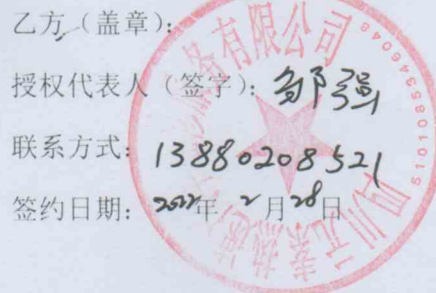 乙方（盖章）：
授权代表人（签字）：邹强
联系方式：13880208521
签约日期：2022年2月28日
四川元素 务有限公司
5101085346048